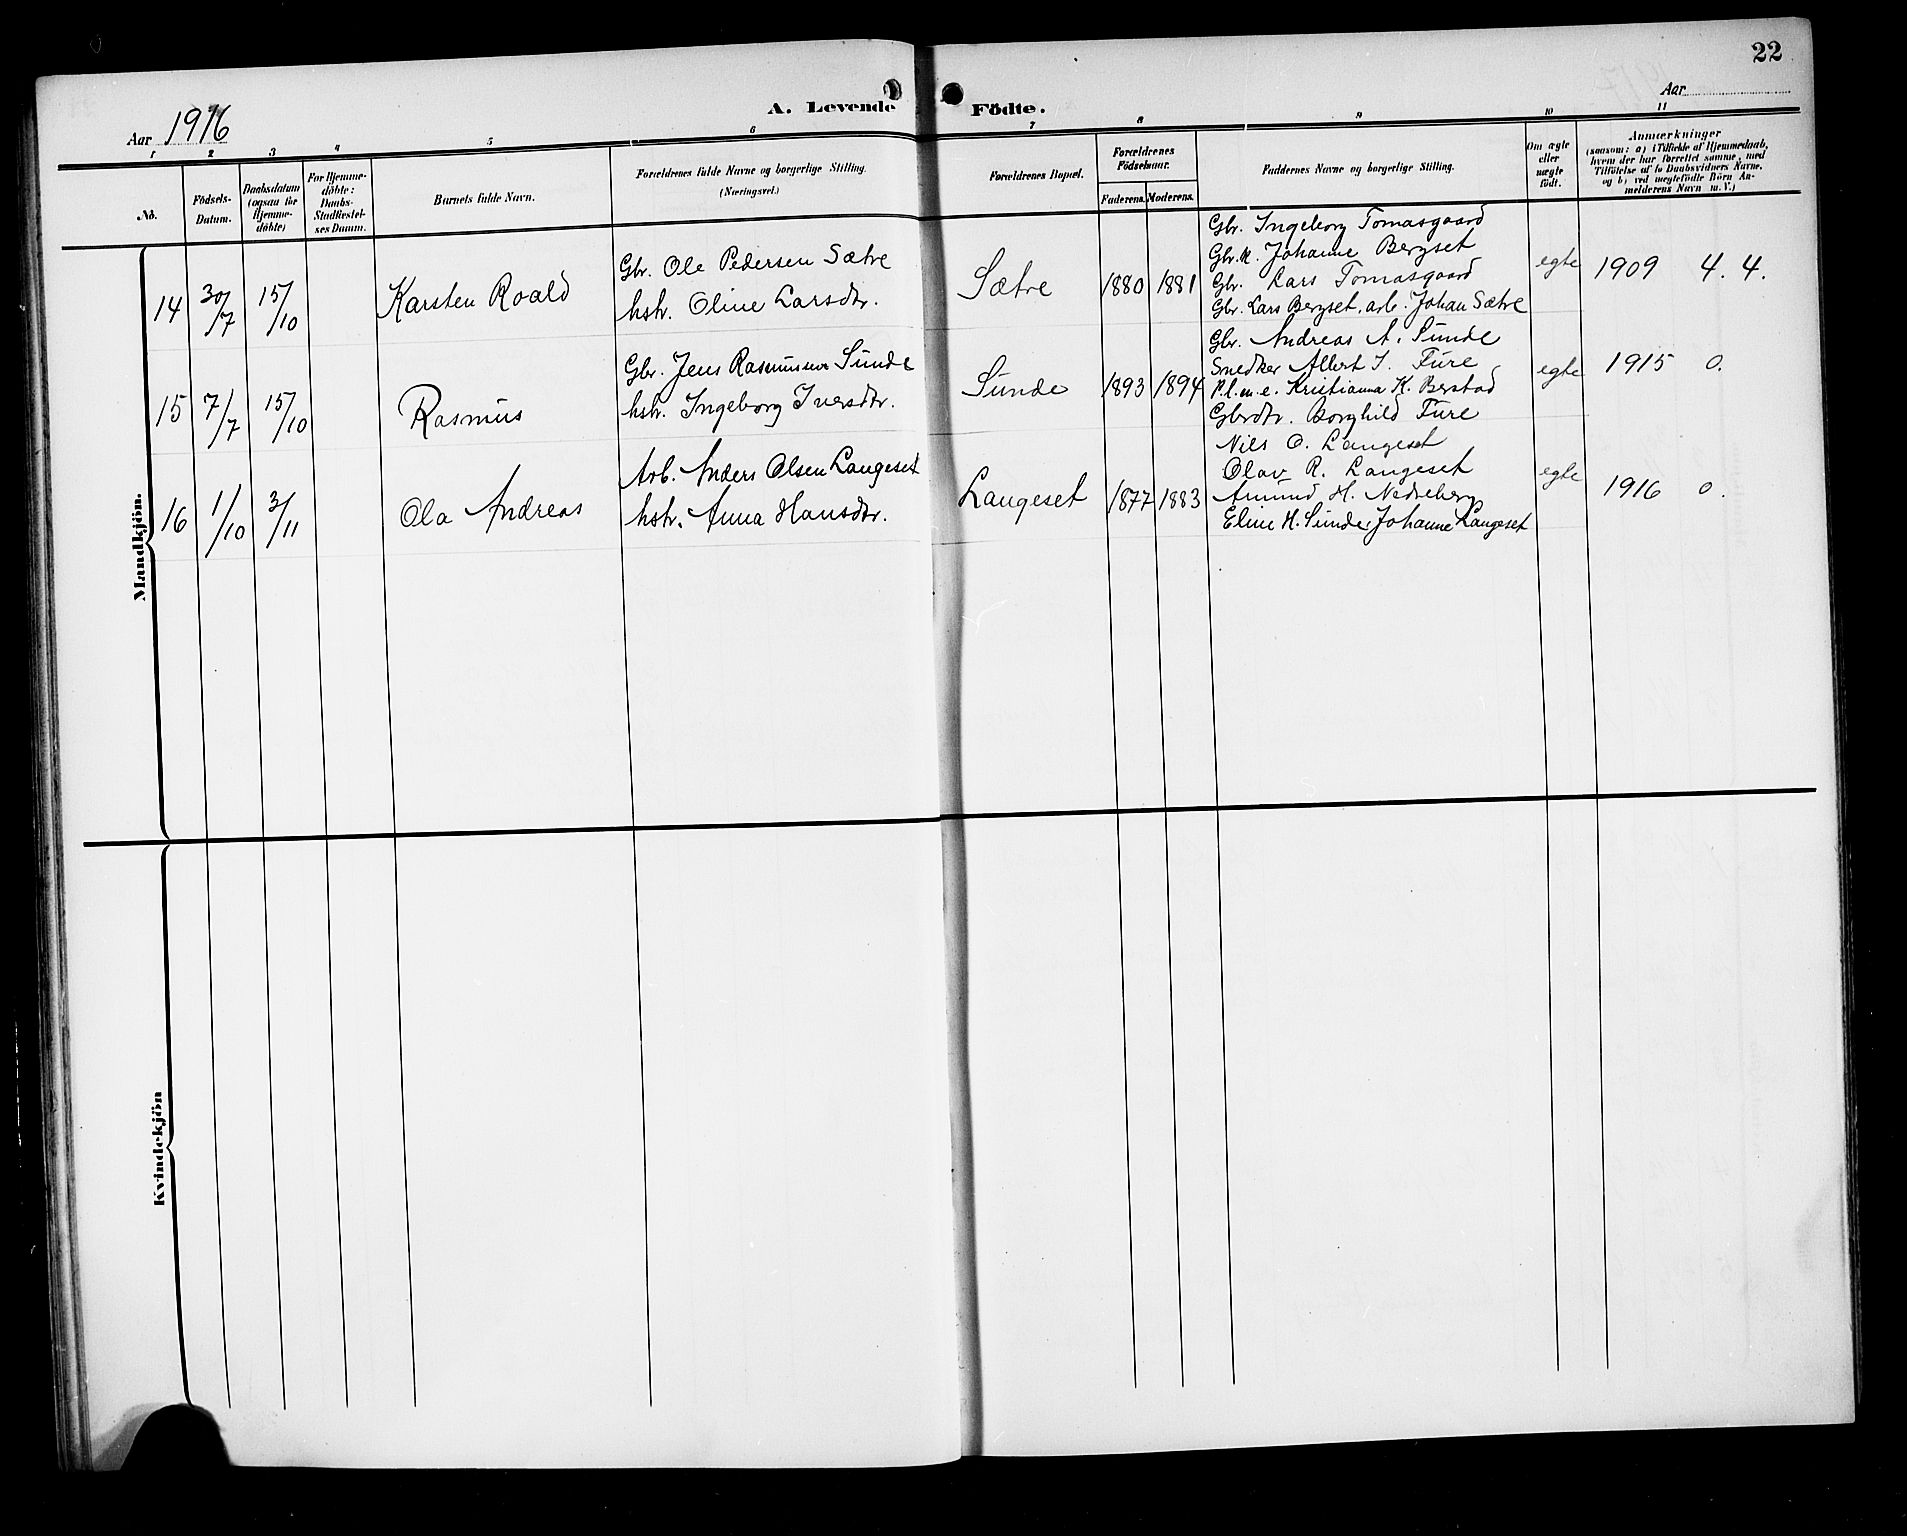 22
A. Levende Födte.
Aar 1916
Aar
1 2 3 4 5 6 7 8 9 10 11
No.
Födsels-
Datum.
Daabsdatum
(ogsaa for
Hjemme-
døbte)
For Hjemme-
døbte:
Daabs-
Stadfæstel-
ses Datum.
Barnets fulde Navn.
Forældrenes fulde Navne og borgerlige Stilling.
(Næringsvei.)
Forældrenes Bopæl.
Forældrenes
Födselsaar.
Faderens. Moderens.
Faddernes Navne og borgerlige Stilling.
Om ægte
eller
uægte
født.
Anmærkninger
(saasom: a) i Tilfælde af Hjemmedaab,
hvem der har forrettet samme, med
Tilföielse af to Daabsvidners Navne.
og b) ved uægtefödte Börn An-
melderens Navn m. V.)
Mandkjön.
14 30/7 15/10 Karsten Roald
Gbr. Ole Pedersen Sætre
hstr. Oline Larsdtr.
Sætre 1880 1881
Gbr. Ingeborg Tomasgaard
Gbr.k. Johanne Bergset
Gbr. Lars Tomasgaard
Gbr. Lars Bergset, arb. Johan Sætre
egte 1909 4. 4.
15 7/7 15/10 Rasmus
Gbr. Jens Rasmussen Sunde
hstr. Ingeborg Iversdtr.
Sunde 1893 1894
Gbr. Andreas A. Sunde
Snedker Albert I. Fure
P.l.m.e. Kristianna K. Berstad
Gbrdtr. Borghild Fure
egte 1915 0.
16 1/10 3/11 Ola Andreas
Arb. Anders Olsen Langeset
hstr. Anna Hansdtr.
Langeset 1877 1883
Nils O. Langeset
Olav R. Langeset
Amund H. Nedreberg
Eline H. Sunde, Johanne Langeset
egte 1916 0.
Kvindekjön